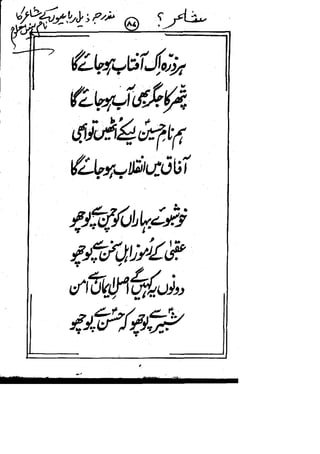 شاعر؟
۸۷
مندرجہ ذیل رباعیوں کے شاعر کا
نام نہیں معلوم
ہر ذرّہ اِک آفتاب ہو جائے گا
پتھر کا جگر بھی آب ہو جائے گا
ہم نامِ حسینؑ لیکے اٹھیں تو ابھی
آفاق میں انقلاب ہو جائے گا
خوشبوئے بہاراں کو چمن سے پوچھو
عقبیٰ کے رُموز اہلِ سخن سے پوچھو
دونوں یہ کہیں گے اصلِ ایماں ہے امن
شبیرؑ سے پوچھو کہ حسنؑ سے پوچھو